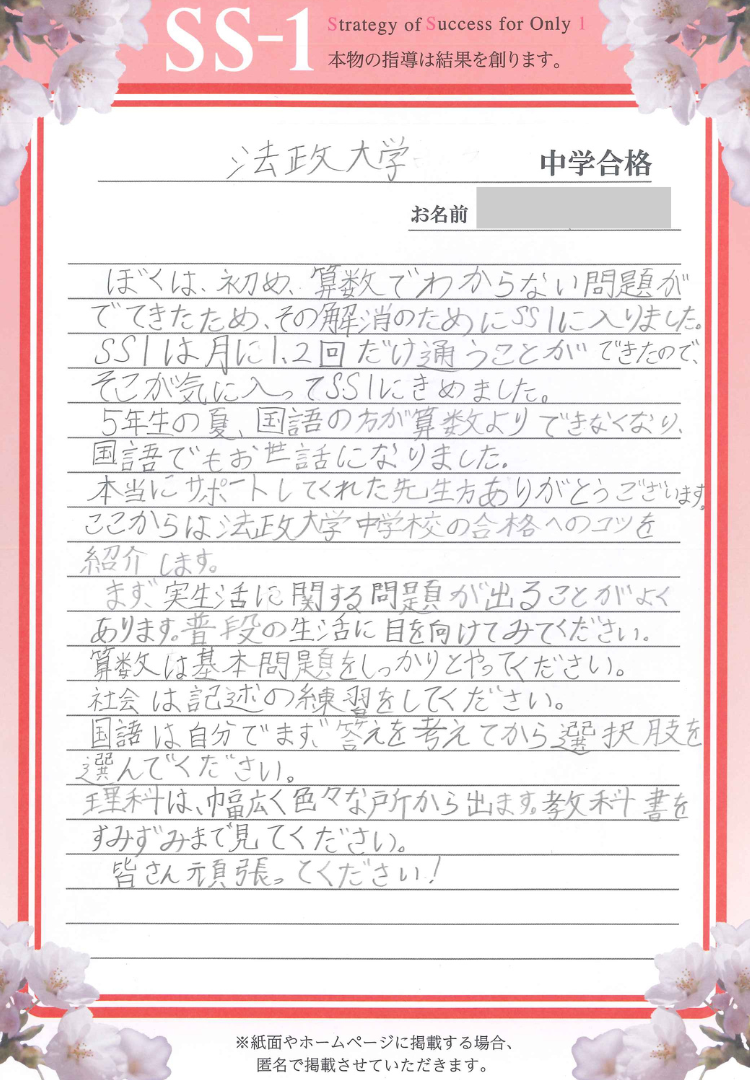 SS-1
Strategy of Success for Only 1
本物の指導は結果を創ります。
法政大学 中学合格
お名前
ぼくは、初め、算数でわからない問題が
でてきたため、その解消のためにSS1に入りました。
SS1は月に1,2回だけ通うことができたので、
そこが気に入ってSS1にきめました。
5年生の夏、国語の方が算数よりできなくなり、
国語でもお世話になりました。
本当にサポートしてくれた先生方ありがとうございます。
ここからは法政大学中学校の合格へのコツを
紹介します。
まず、実生活に関する問題が出ることがよく
あります。普段の生活に目を向けてみてください。
算数は基本問題をしっかりとやってください。
社会は記述の練習をしてください。
国語は自分でまず答えを考えてから選択肢を
選んでください。
理科は、幅広く色々な所から出ます。教科書を
すみずみまで見てください。
皆さん頑張ってください!
※紙面やホームページに掲載する場合、
匿名で掲載させていただきます。